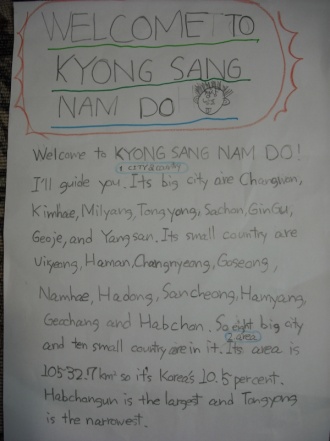 WELCOME TO
KYONG SANG
NAM DO
Welcome to KYONG SANG NAM DO!
1 CITY & COUNTRY
I'll guide you. Its big city are Changwon,
Kimhae, Milyang, Tongyong, Sachon, GinGu,
Geoje, and Yangsan. Its small country are
Uiryeong, Haman, Changnyeong, Goseong,
Namhae, Hadong, Sancheong, Hamyang,
Geochang and Habchon. So eight big city
2 area
and ten small country are in it. Its area is
10532.7 km² so it's Korea's 10.5 percent.
Habchangun is the largest and Tongyong
is the narrowest.